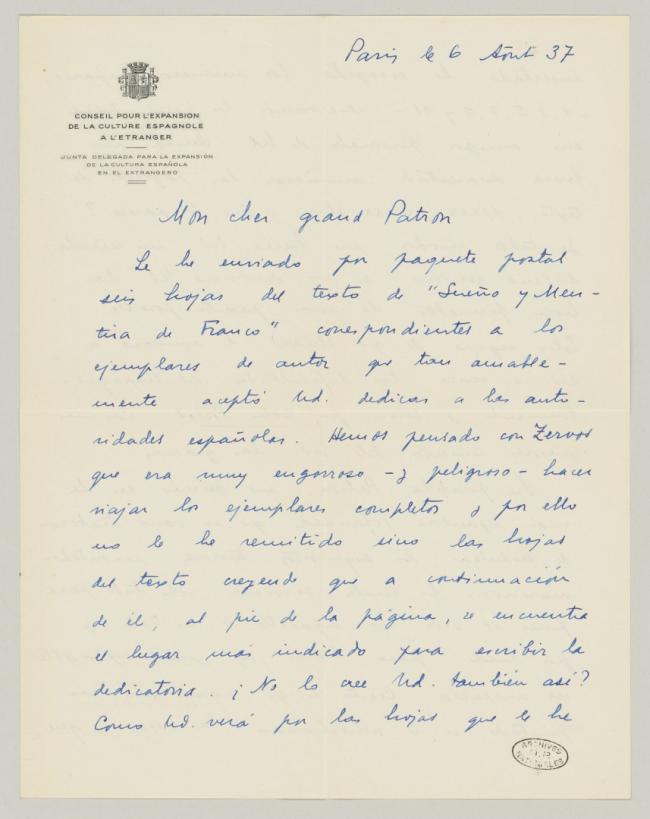 Paris le 6 Août 37
CONSEIL POUR L'EXPANSION
DE LA CULTURE ESPAGNOLE
A L'ETRANGER
JUNTA DELEGADA PARA LA EXPANSIÓN
DE LA CULTURA ESPAÑOLA
EN EL EXTRANGERO
Mon cher grand Patron
Le he enviado por paquete postal
seis hojas del texto de "Sueño y Men-
tira de Franco" correspondientes a los
ejemplares de autor que tan amable-
mente aceptó Ud. dedicar a las auto-
ridades españolas. Hemos pensado con Zervos
que era muy engorroso - y peligroso - hacer
viajar los ejemplares completos y por ello
no le he remitido sino las hojas
del texto creyendo que a continuación
de él, al pie de la página, se encuentra
el lugar más indicado para escribir la
dedicatoria. ¿No lo cree Ud. también así?
Como Ud. verá por las hojas que le he
ARCHIVES
NATIONALES